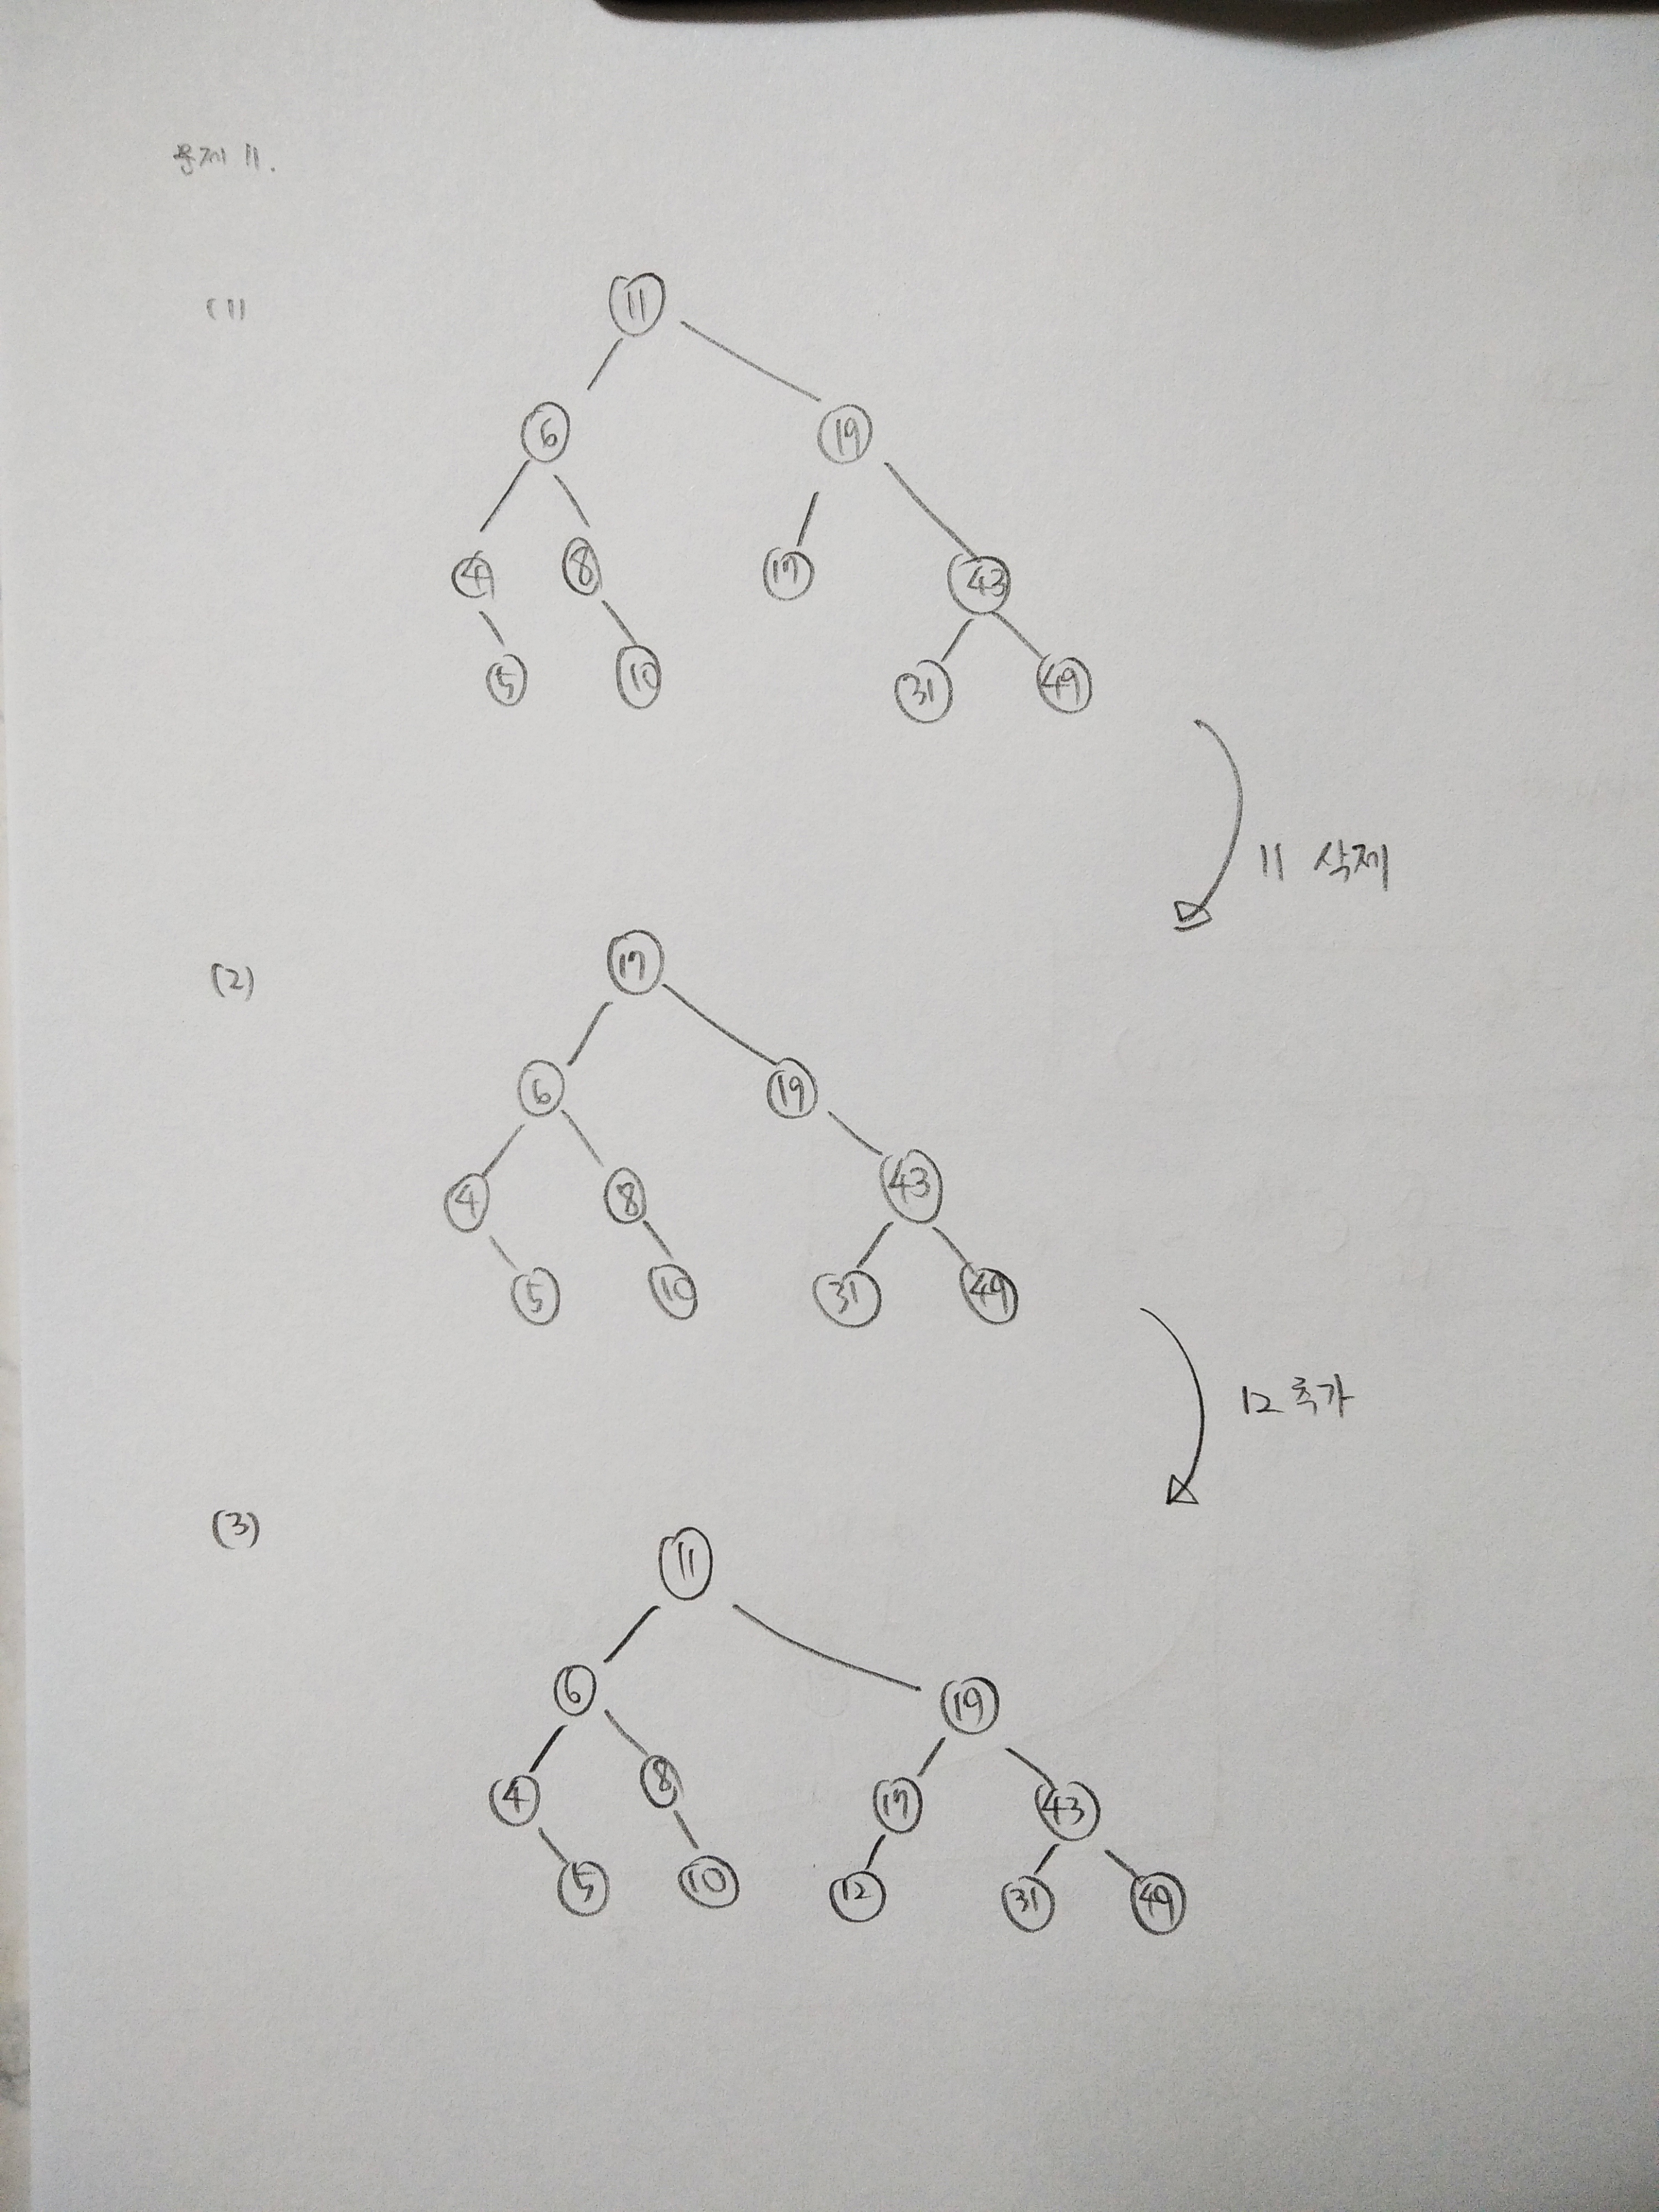 문제 11.
(1)
11
6 19
4 8 17 43
5 10 31 49
11 삭제
(2)
17
6 19
4 8 43
5 10 31 49
12 추가
(3)
11
6 19
4 8 17 43
5 10 12 31 49